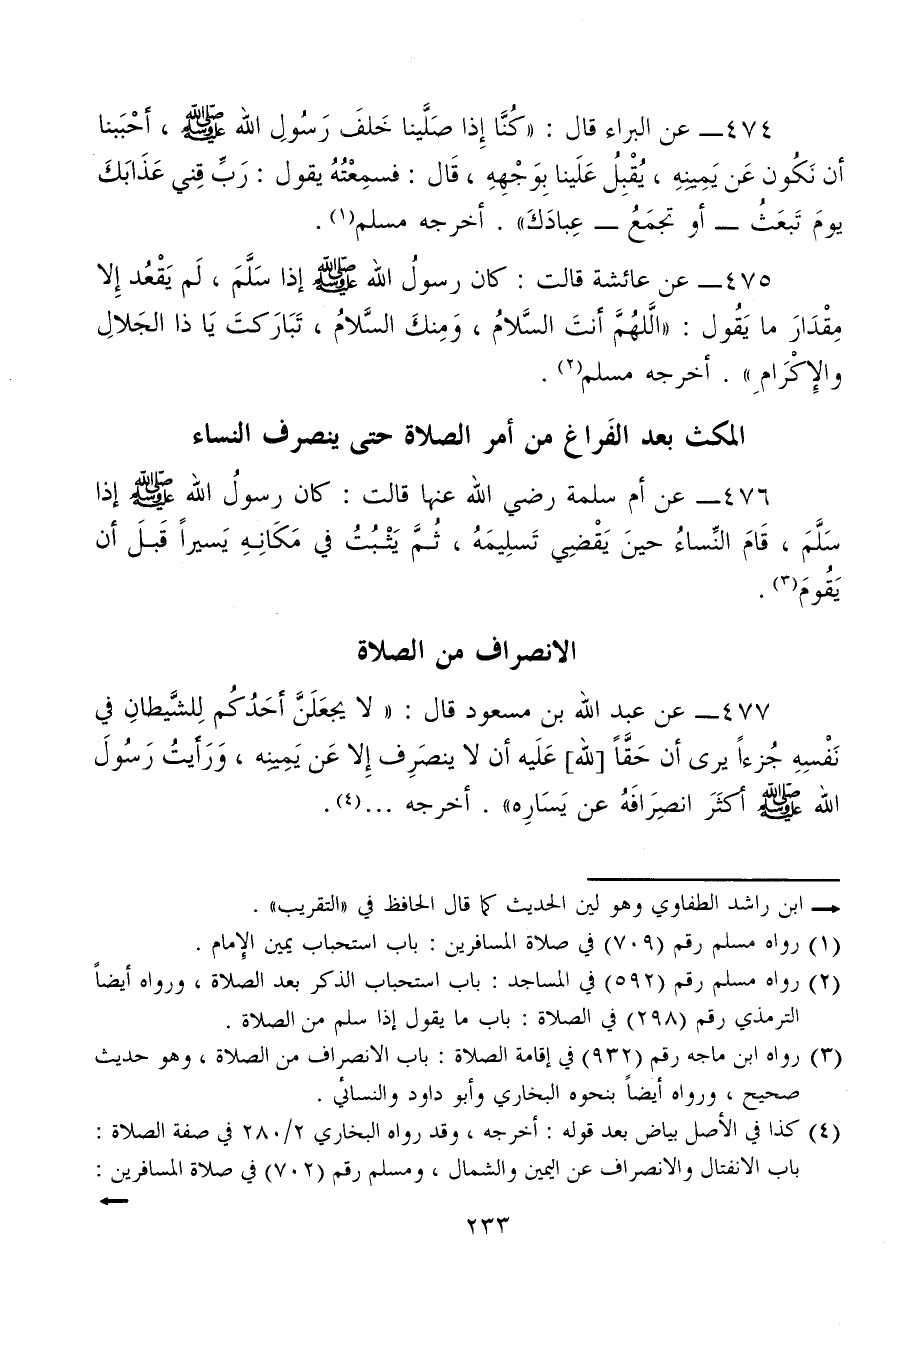 ٤٧٤ـــ عن البراء قال : «كُنَّا إِذا صَلَّينا خَلفَ رَسُولِ الله ﷺ ، أَحْبَبنا
أن نَكُون عَن يَمِينِهِ ، يُقْبِلُ عَلَينا بِوَجْهِهِ ، قَال : فسمِعْتُهُ يقول : رَبِّ قِني عَذَابَكَ
يومَ تَبعَثُ ـــ أو تجمَعُ ـــ عِبادَكَ» . أخرجه مسلم(١).
٤٧٥ـــ عن عائشة قالت : كان رسولُ الله ﷺ إذا سَلَّمَ ، لَم يَقْعُد إلا
مِقْدَارَ ما يَقُول : «اللَّهُمَّ أنتَ السَّلامُ ، وَمِنكَ السَّلامُ ، تَبَارَكتَ يَا ذا الجَلالِ
والإِكْرَامِ» . أخرجه مسلم(٢) .
المكث بعد الفَراغ من أمر الصلاة حتى ينصرف النساء
٤٧٦ـــ عن أم سلمة رضي الله عنها قالت : كان رسولُ الله ﷺ إذا
سَلَّمَ ، قَامَ النِّساءُ حينَ يَقْضِي تَسلِيمَهُ ، ثُمَّ يَثْبُتُ في مَكَانِهِ يَسيراً قَبلَ أن
يَقُومَ(٣) .
الانصراف من الصلاة
٤٧٧ـــ عن عبد الله بن مسعود قال : « لا يجعَلَنَّ أحَدُكُم لِلشَّيطانِ في
نَفْسِهِ جُزءاً يرى أن حَقَّاً [لله] عَلَيه أن لا ينصَرِف إلا عَن يَمِينِه ، وَرَأيتُ رَسُولَ
الله ﷺ أكثَرَ انصِرَافَهُ عن يَسَارِه» . أخرجه ...(٤).
← ابن راشد الطفاوي وهو لين الحديث كما قال الحافظ في «التقريب» .
(١) رواه مسلم رقم (٧٠٩) في صلاة المسافرين : باب استحباب يمين الإمام .
(٢) رواه مسلم رقم (٥٩٢) في المساجد : باب استحباب الذكر بعد الصلاة ، ورواه أيضاً
الترمذي رقم (٢٩٨) في الصلاة : باب ما يقول إذا سلم من الصلاة .
(٣) رواه ابن ماجه رقم (٩٣٢) في إقامة الصلاة : باب الانصراف من الصلاة ، وهو حديث
صحيح ، ورواه أيضاً بنحوه البخاري وأبو داود والنسائي .
(٤) كذا في الأصل بياض بعد قوله : أخرجه ، وقد رواه البخاري ٢٨٠/٢ في صفة الصلاة :
باب الانفتال والانصراف عن اليمين والشمال ، ومسلم رقم (٧٠٢) في صلاة المسافرين :
←
٢٣٣